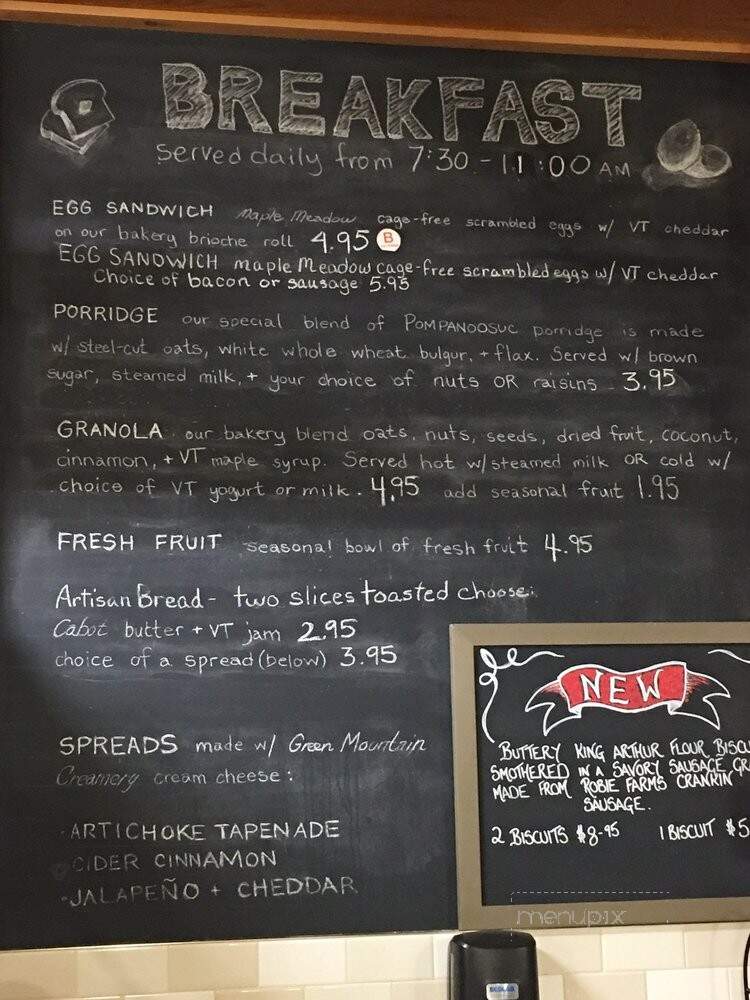 BREAKFAST
served daily from 7:30 - 11:00 AM
EGG SANDWICH Maple Meadow cage-free scrambled eggs w/ VT cheddar
on our bakery brioche roll 4.95 B
EGG SANDWICH maple Meadow cage-free scrambled eggs w/ VT cheddar
Choice of bacon or sausage 5.95
PORRIDGE our special blend of POMPANOOSUC porridge is made
w/ steel-cut oats, white whole wheat bulgur, + flax. Served w/ brown
sugar, steamed milk, + your choice of nuts OR raisins 3.95
GRANOLA our bakery blend oats, nuts, seeds, dried fruit, coconut,
cinnamon, + VT maple syrup. Served hot w/ steamed milk OR cold w/
choice of VT yogurt or milk. 4.95 add seasonal fruit 1.95
FRESH FRUIT seasonal bowl of fresh fruit 4.95
Artisan Bread - two slices toasted choose:
Cabot butter + VT jam 2.95
choice of a spread (below) 3.95
SPREADS made w/ Green Mountain
Creamery cream cheese:
· ARTICHOKE TAPENADE
· CIDER CINNAMON
· JALAPEÑO + CHEDDAR
NEW
BUTTERY KING ARTHUR FLOUR BISCU
SMOTHERED IN A SAVORY SAUSAGE GR
MADE FROM ROBIE FARMS CRANKIN
SAUSAGE.
2 BISCUITS $8.95 1 BISCUIT $5
menupix
ECOLAB